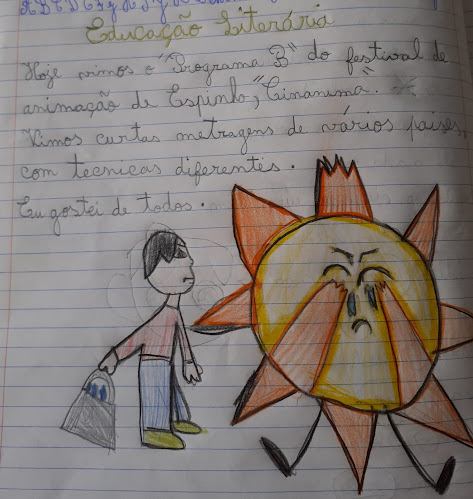 Educação Literária
Hoje vimos o "Programa B" do festival de
animação de Espinho, "Cinanima".
Vimos curtas metragens de vários países,
com tecnicas diferentes.
Eu gostei de todos.